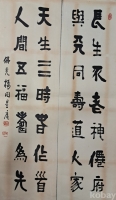 長生不老神僊府
與天同壽道人家
天上亖時春作首
人間五福壽為先